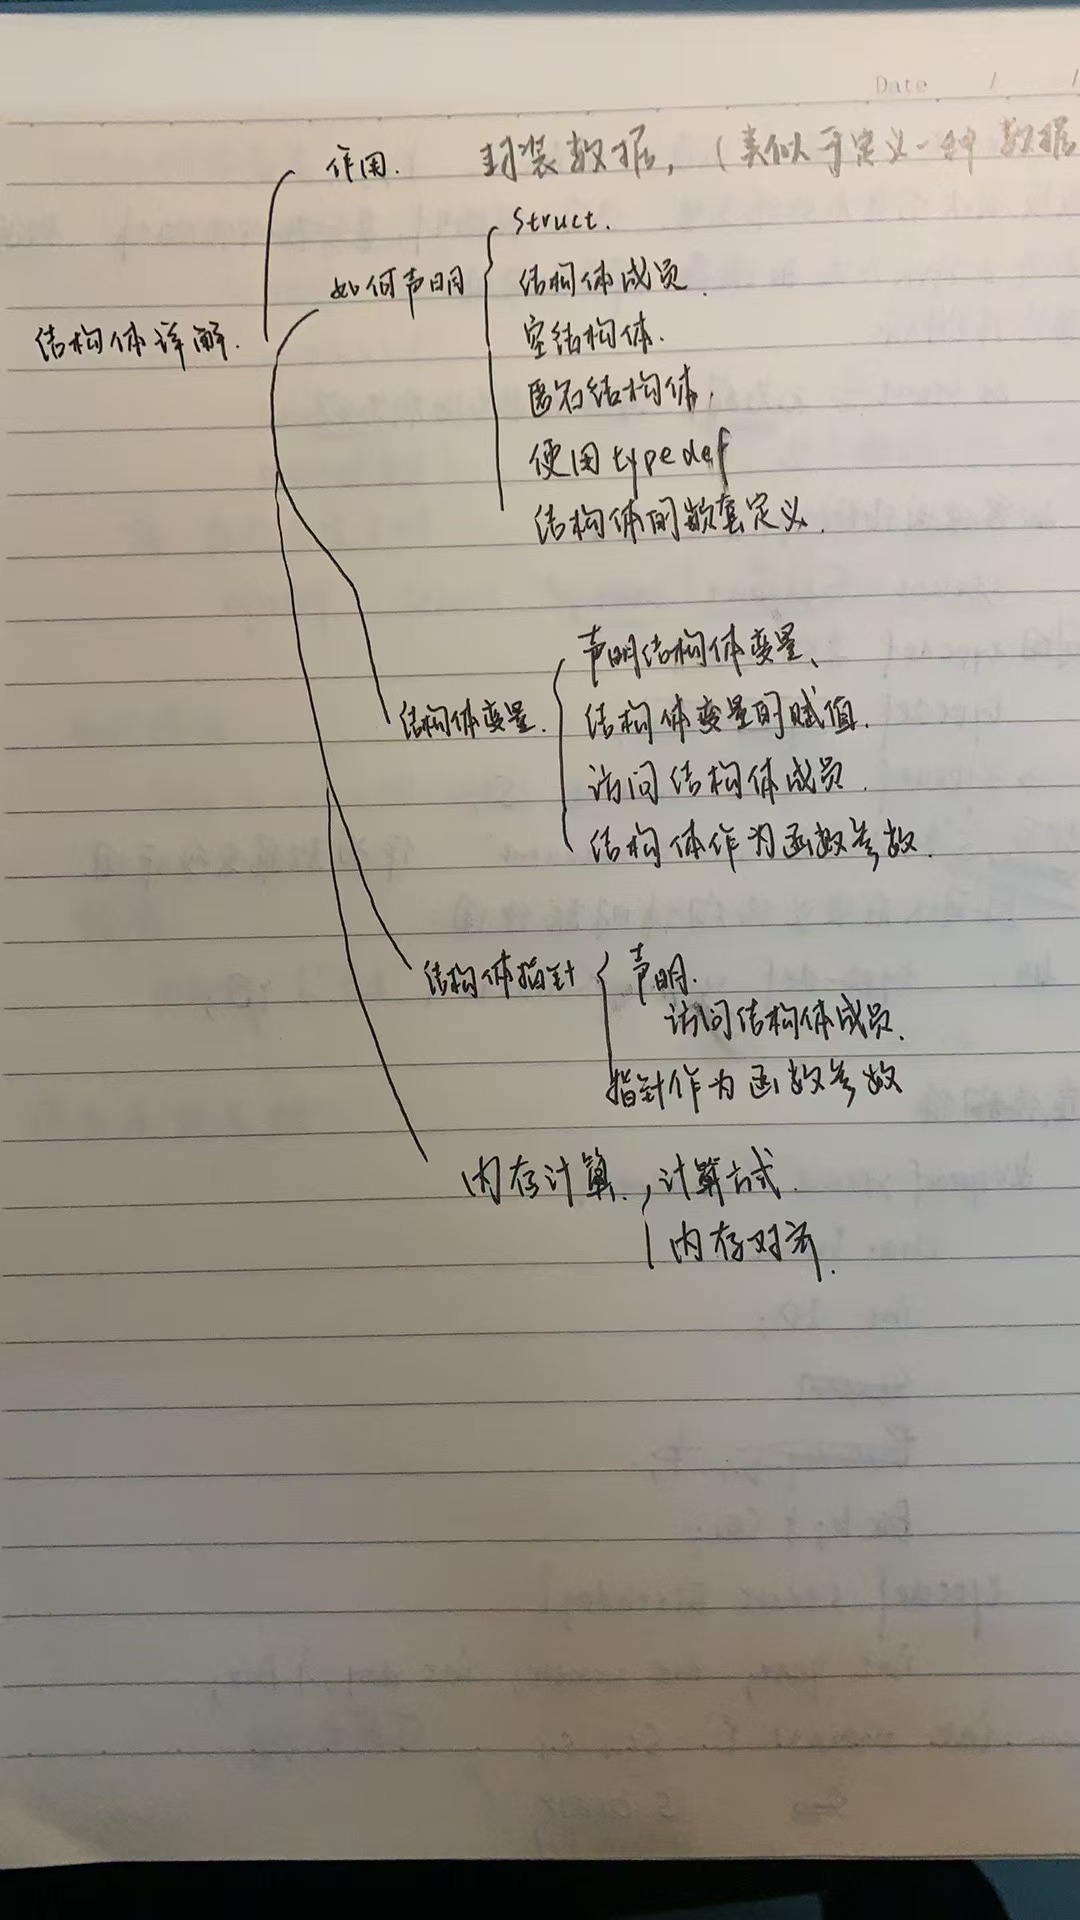 Date / /
作用. 封装数据,(类似于定义一种数据
Struct.
如何声明
结构体成员.
结构体详解.
空结构体.
匿名结构体.
使用typedef
结构体的嵌套定义.
声明结构体变量、
结构体变量.
结构体变量的赋值.
访问结构体成员.
结构体作为函数参数.
结构体指针
声明.
访问结构体成员.
指针作为函数参数
内存计算. 计算方式.
内存对齐.